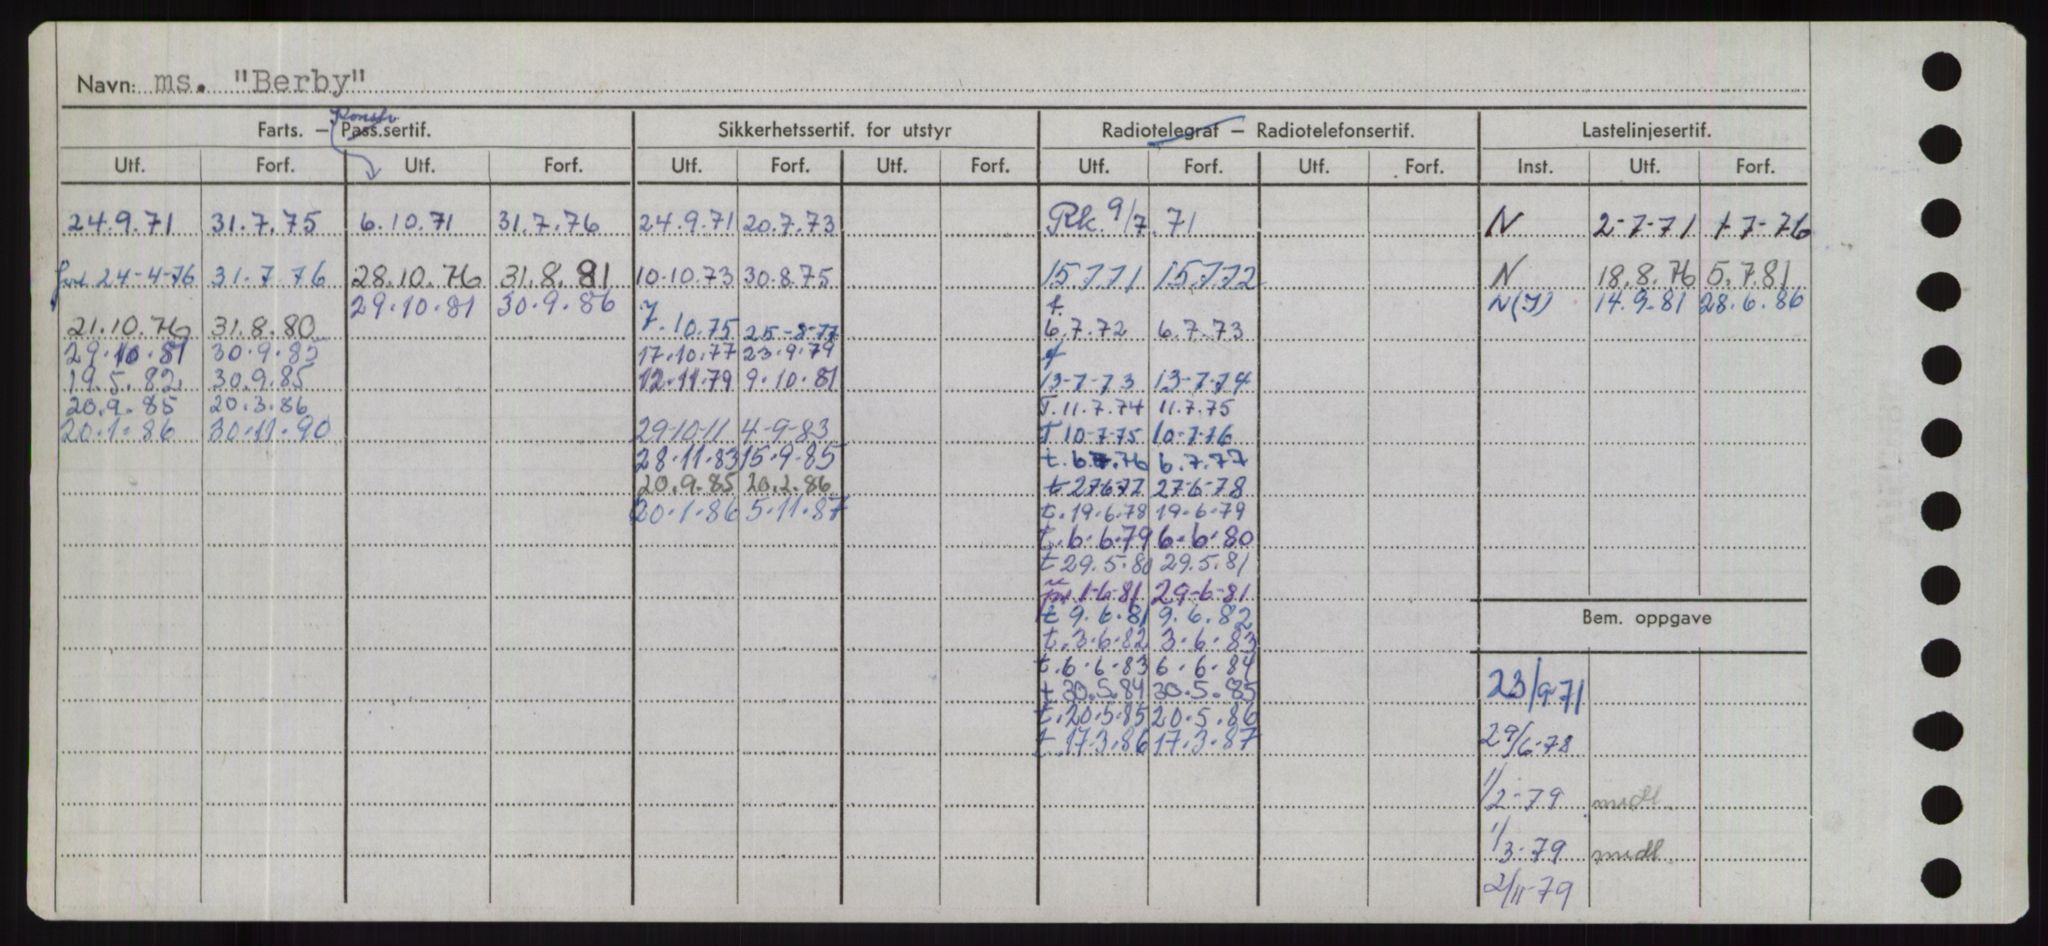 Navn: ms. "Berby"
Konstr.
Farts. – Pass.sertif. Sikkerhetssertif. for utstyr Radiotelegraf – Radiotelefonsertif. Lastelinjesertif.
Utf. Forf. Utf. Forf. Utf. Forf. Utf. Forf. Utf. Forf. Utf. Forf. Inst. Utf. Forf.
24.9.71 31.7.75 6.10.71 31.7.76 24.9.71 20.7.73 Rk. 9/7.71 N 2-7-71 1-7-76
24-4-76 31.7.76 28.10.76 31.8.81 10.10.73 30.8.75 15.7.71 15.7.72 N 18.8.76 5.7.81
29.10.81 30.9.86 N(I) 14.9.81 28.6.86
21.10.76 31.8.80 7.10.75 25-8-77 t. 6.7.72 6.7.73
29.10.81 30.9.85 17.10.77 23.9.79
19.5.82 30.9.85 12.11.79 9.10.81 13-7-73 13-7-74
20.9.85 20.3.86 T. 11.7.74 11.7.75
20.1.86 30.11.90 29-10-11 4-9-83 T 10-7-75 10-7-76
28.11.83 15.9.85 t. 6.7.76 6.7.77
20.9.85 20.2.86 t 27.6.77 27-6-78
20.1.86 5.11.87 t. 19.6.78 19.6.79
t. 6.6.79 6.6.80
t 29.5.80 29.5.81
1-6-81 29-6-81
t 9.6.81 9.6.82 Bem. oppgave
t. 3.6.82 3.6.83
t. 6.6.83 6.6.84
t 30.5.84 30.5.85 23/9-71
t. 20.5.85 20.5.86
t. 17.3.86 17.3.87 29/6-78
1/2-79 midl.
1/3-79 midl.
2/11-79